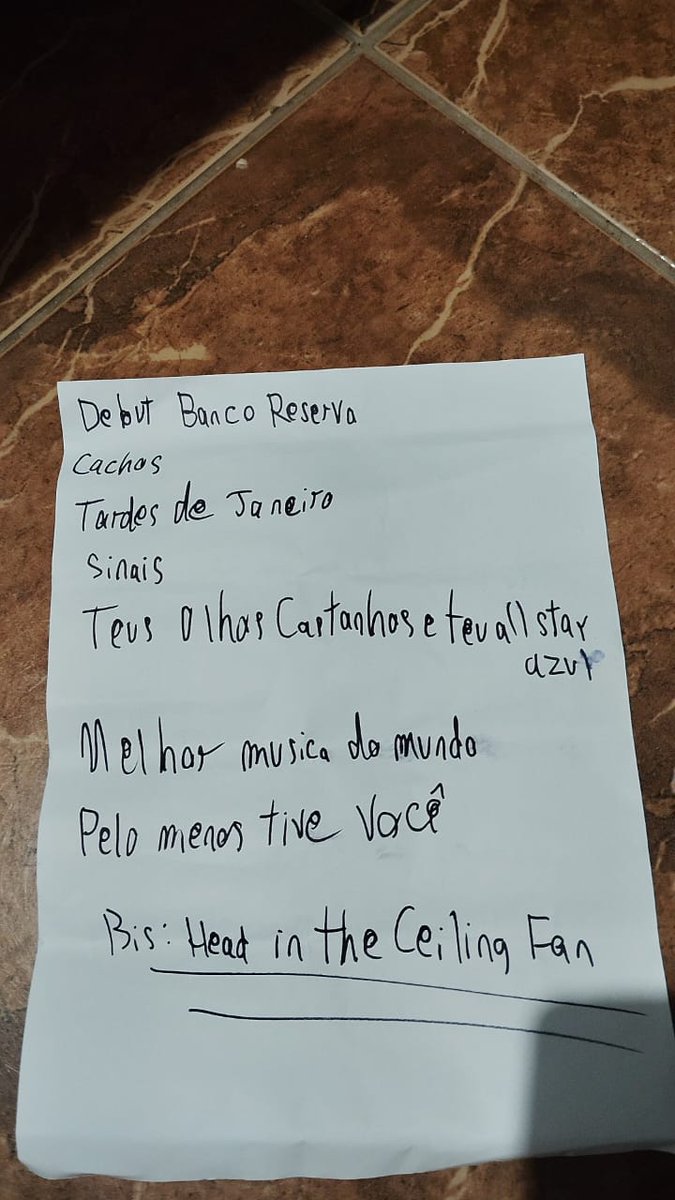 Debut Banco Reserva
Cachos
Tardes de Janeiro
Sinais
Teus Olhos Castanhos e teu all star
azul
Melhor musica do mundo
Pelo menos tive Você
Bis: Head in the Ceiling Fan